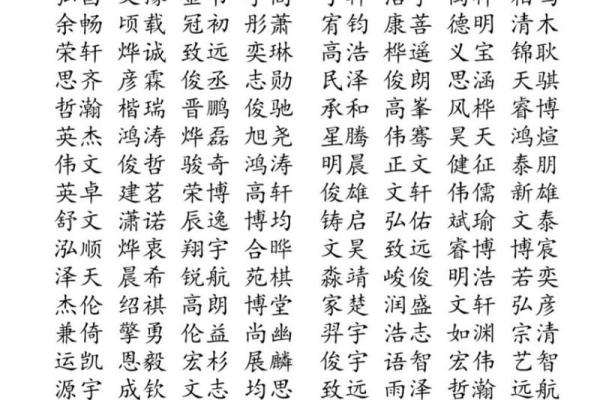 余畅 顷载 冠初 彤萧 宥钧 康善 德明 清木
荣轩 烨诚 致远 奕琳 高浩 桦遥 义宝 锦耿
思齐 彦霖 俊丞 志勋 民泽 俊朗 思涵 天骐
哲瀚 楷瑞 晋鹏 俊驰 承和 高峯 风桦 睿博
英杰 鸿涛 烨磊 旭尧 星腾 伟骞 昊天 鸿煊
伟文 俊哲 骏奇 鸿涛 明晨 正文 健征 泰朋
英卓 建茗 荣博 高轩 俊雄 文轩 伟儒 新雄
舒文 潇诺 辰逸 博均 铸启 弘佑 斌瑜 文泰
泓顺 烨衷 翔宇 合晔 文昊 致远 睿博 博宸
泽天 晨希 锐航 苑棋 淼靖 峻俊 明浩 若奕
杰伦 绍祺 高朗 博堂 家楚 润盛 文轩 弘彦
兼倚 擎勇 伦益 尚幽 羿宇 浩志 如渊 宗清
运凯 恩毅 宏杉 展麟 俊宇 语智 宏伟 艺智
源宇 成钦 文志 均思 致远 雨泽 哲瀚 远航